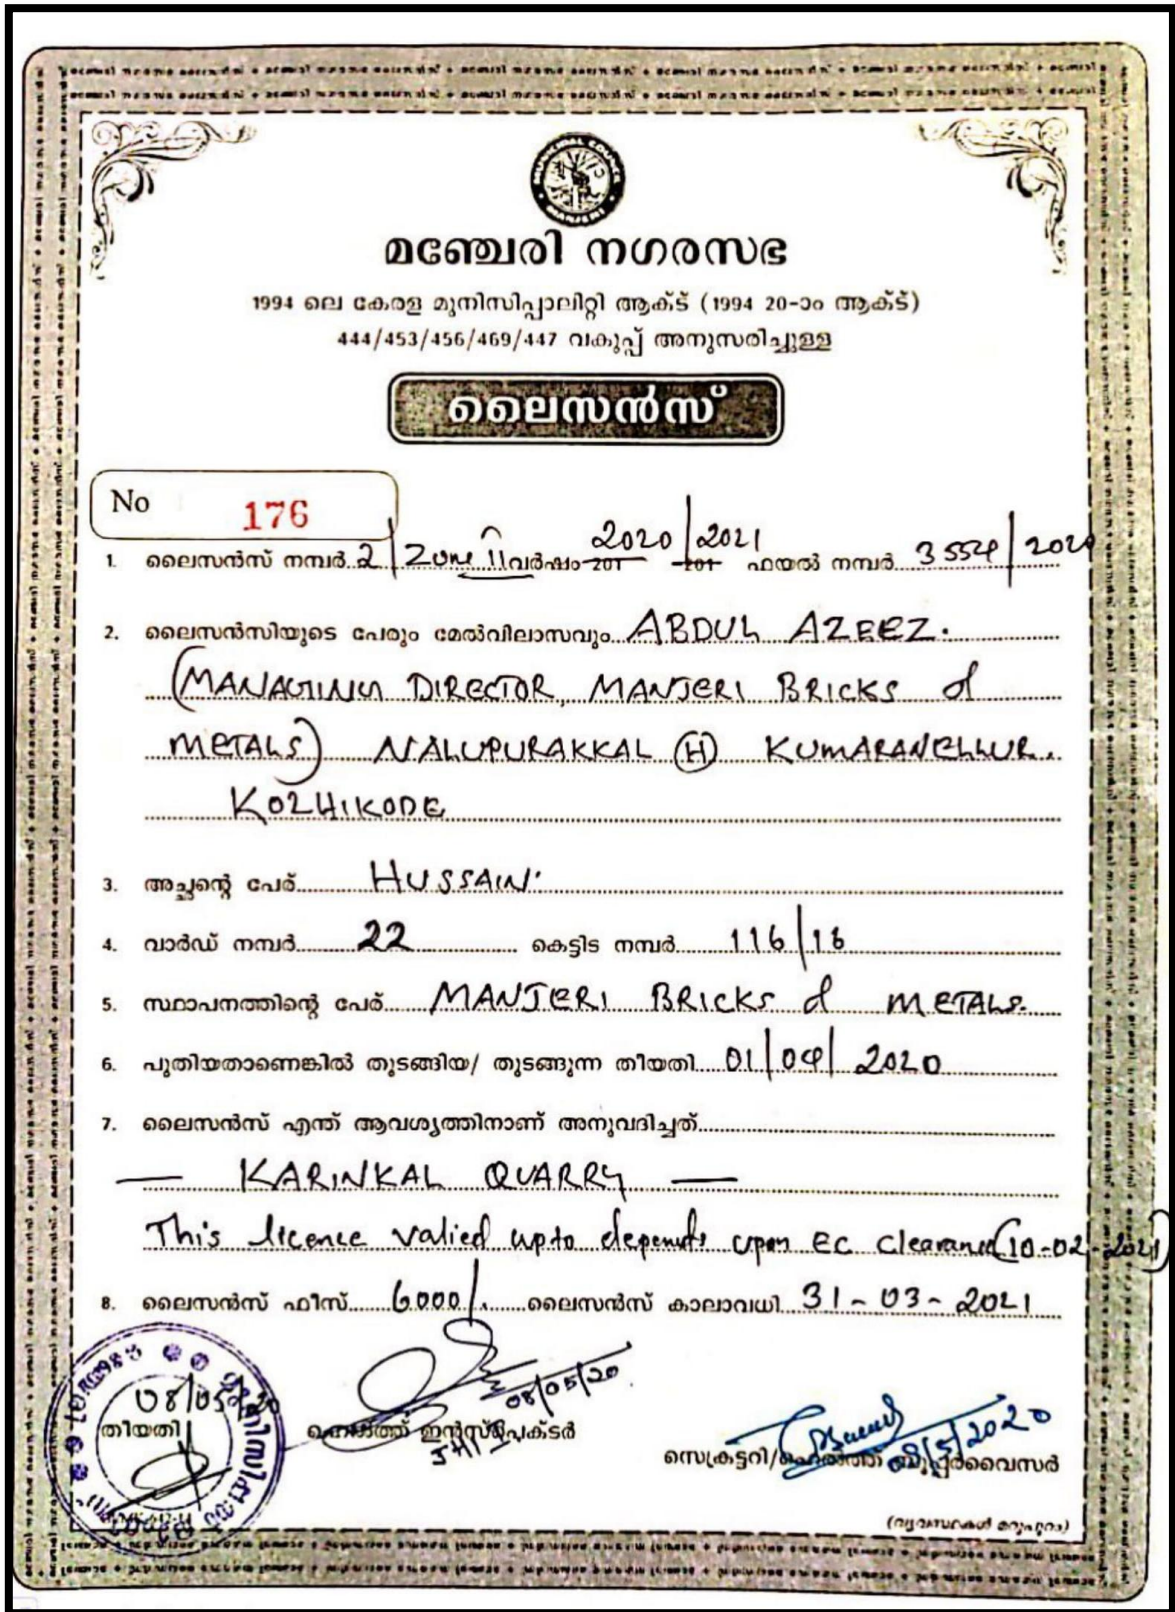 MUNICIPAL COUNCIL
MANJERI
മഞ്ചേരി നഗരസഭ
1994 ലെ കേരള മുനിസിപ്പാലിറ്റി ആക്ട് (1994 20-ാം ആക്ട്)
444/453/456/469/447 വകുപ്പ് അനുസരിച്ചുള്ള
ലൈസൻസ്
No 176
1. ലൈസൻസ് നമ്പർ 2/Zone II വർഷം 2020/2021 ഫയൽ നമ്പർ 3554/2020
2. ലൈസൻസിയുടെ പേരും മേൽവിലാസവും ABDUL AZEEZ.
(MANAGING DIRECTOR, MANJERI BRICKS &
METALS) NALUPURAKKAL (H) KUMARANELLUR.
KOZHIKODE
3. അച്ഛന്റെ പേര് HUSSAIN
4. വാർഡ് നമ്പർ 22 കെട്ടിട നമ്പർ 116/18
5. സ്ഥാപനത്തിന്റെ പേര് MANJERI BRICKS & METALS.
6. പുതിയതാണെങ്കിൽ തുടങ്ങിയ/ തുടങ്ങുന്ന തിയതി 01/04/2020
7. ലൈസൻസ് എന്ത് ആവശ്യത്തിനാണ് അനുവദിച്ചത്
— KARINKAL QUARRY —
This licence valied upto depends upon EC clearance (10-02-2021)
8. ലൈസൻസ് ഫീസ് 6000/. ലൈസൻസ് കാലാവധി 31-03-2021
08/05/20
തിയതി
08/05/20
ഹെൽത്ത് ഇൻസ്പെക്ടർ
08/5/2020
സെക്രട്ടറി/ഹെൽത്ത് സൂപ്പർവൈസർ
(വ്യവസ്ഥകൾ മറുപുറം)